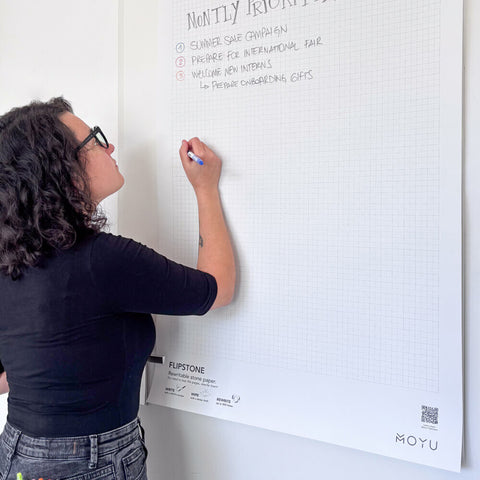 MONTLY PRIORITI
① SUMMER SALE CAMPAIGN
② PREPARE FOR INTERNATIONAL FAIR
③ WELCOME NEW INTERNS
↳ PREPARE ONBOARDING GIFTS
FLIPSTONE
Rewritable stone paper.
WRITE
WIPE
REWRITE
MOYU